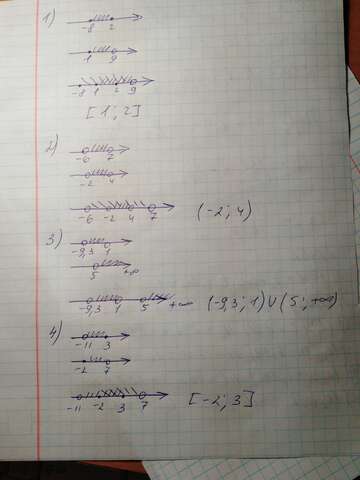 1)
-8 2
1 9
-8 1 2 9
[1; 2]
2)
-6 7
-2 4
-6 -2 4 7 (-2; 4)
3)
-9,3 1
5 +∞
-9,3 1 5 +∞ (-9,3; 1) U (5; +∞)
4)
-11 3
-2 7
-11 -2 3 7 [-2; 3]